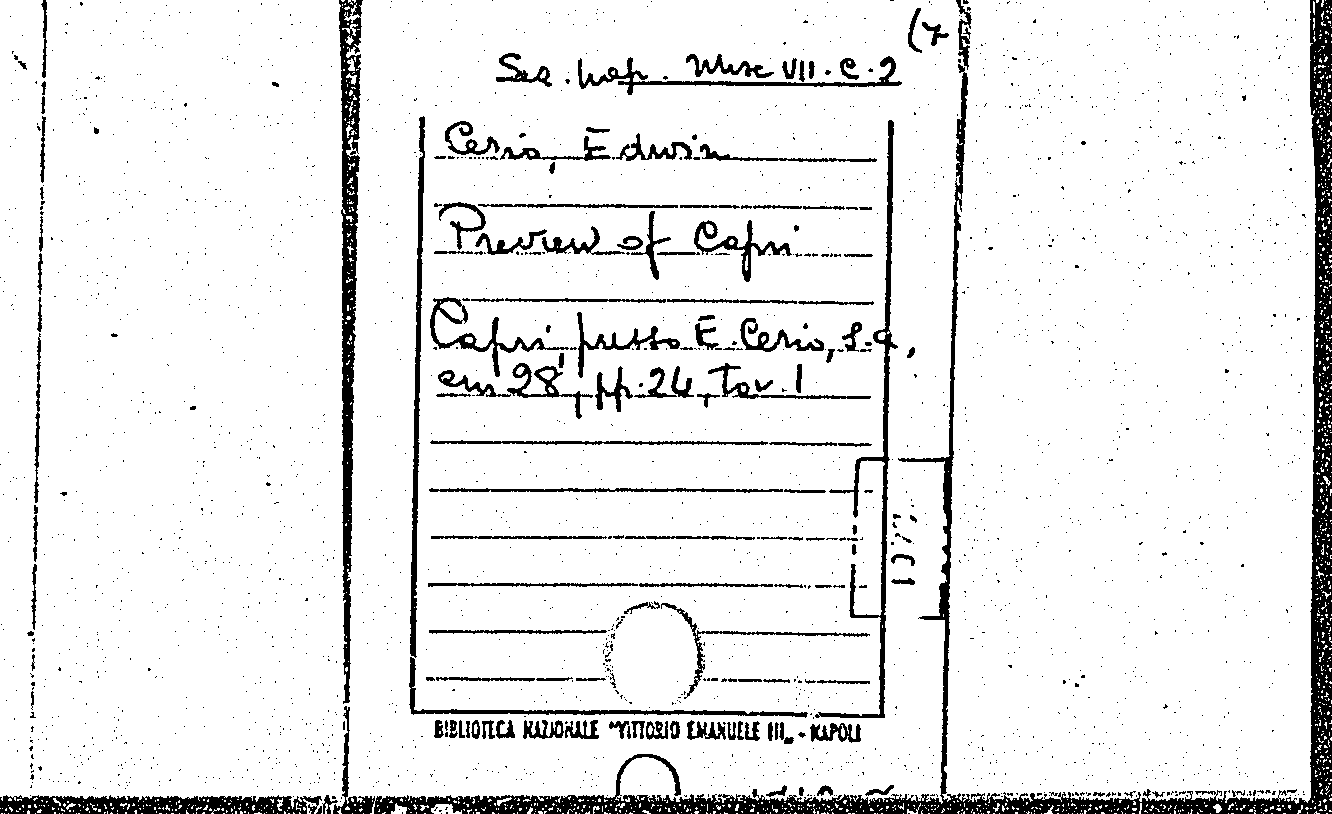 (7
Sez. Nap. Misc VII. C. 2
Cerio, Edwin
Preview of Capri
Capri, presso E. Cerio, s.a.,
cm 28, pp. 24, Tav. 1
BIBLIOTECA NAZIONALE "VITTORIO EMANUELE III„ - NAPOLI